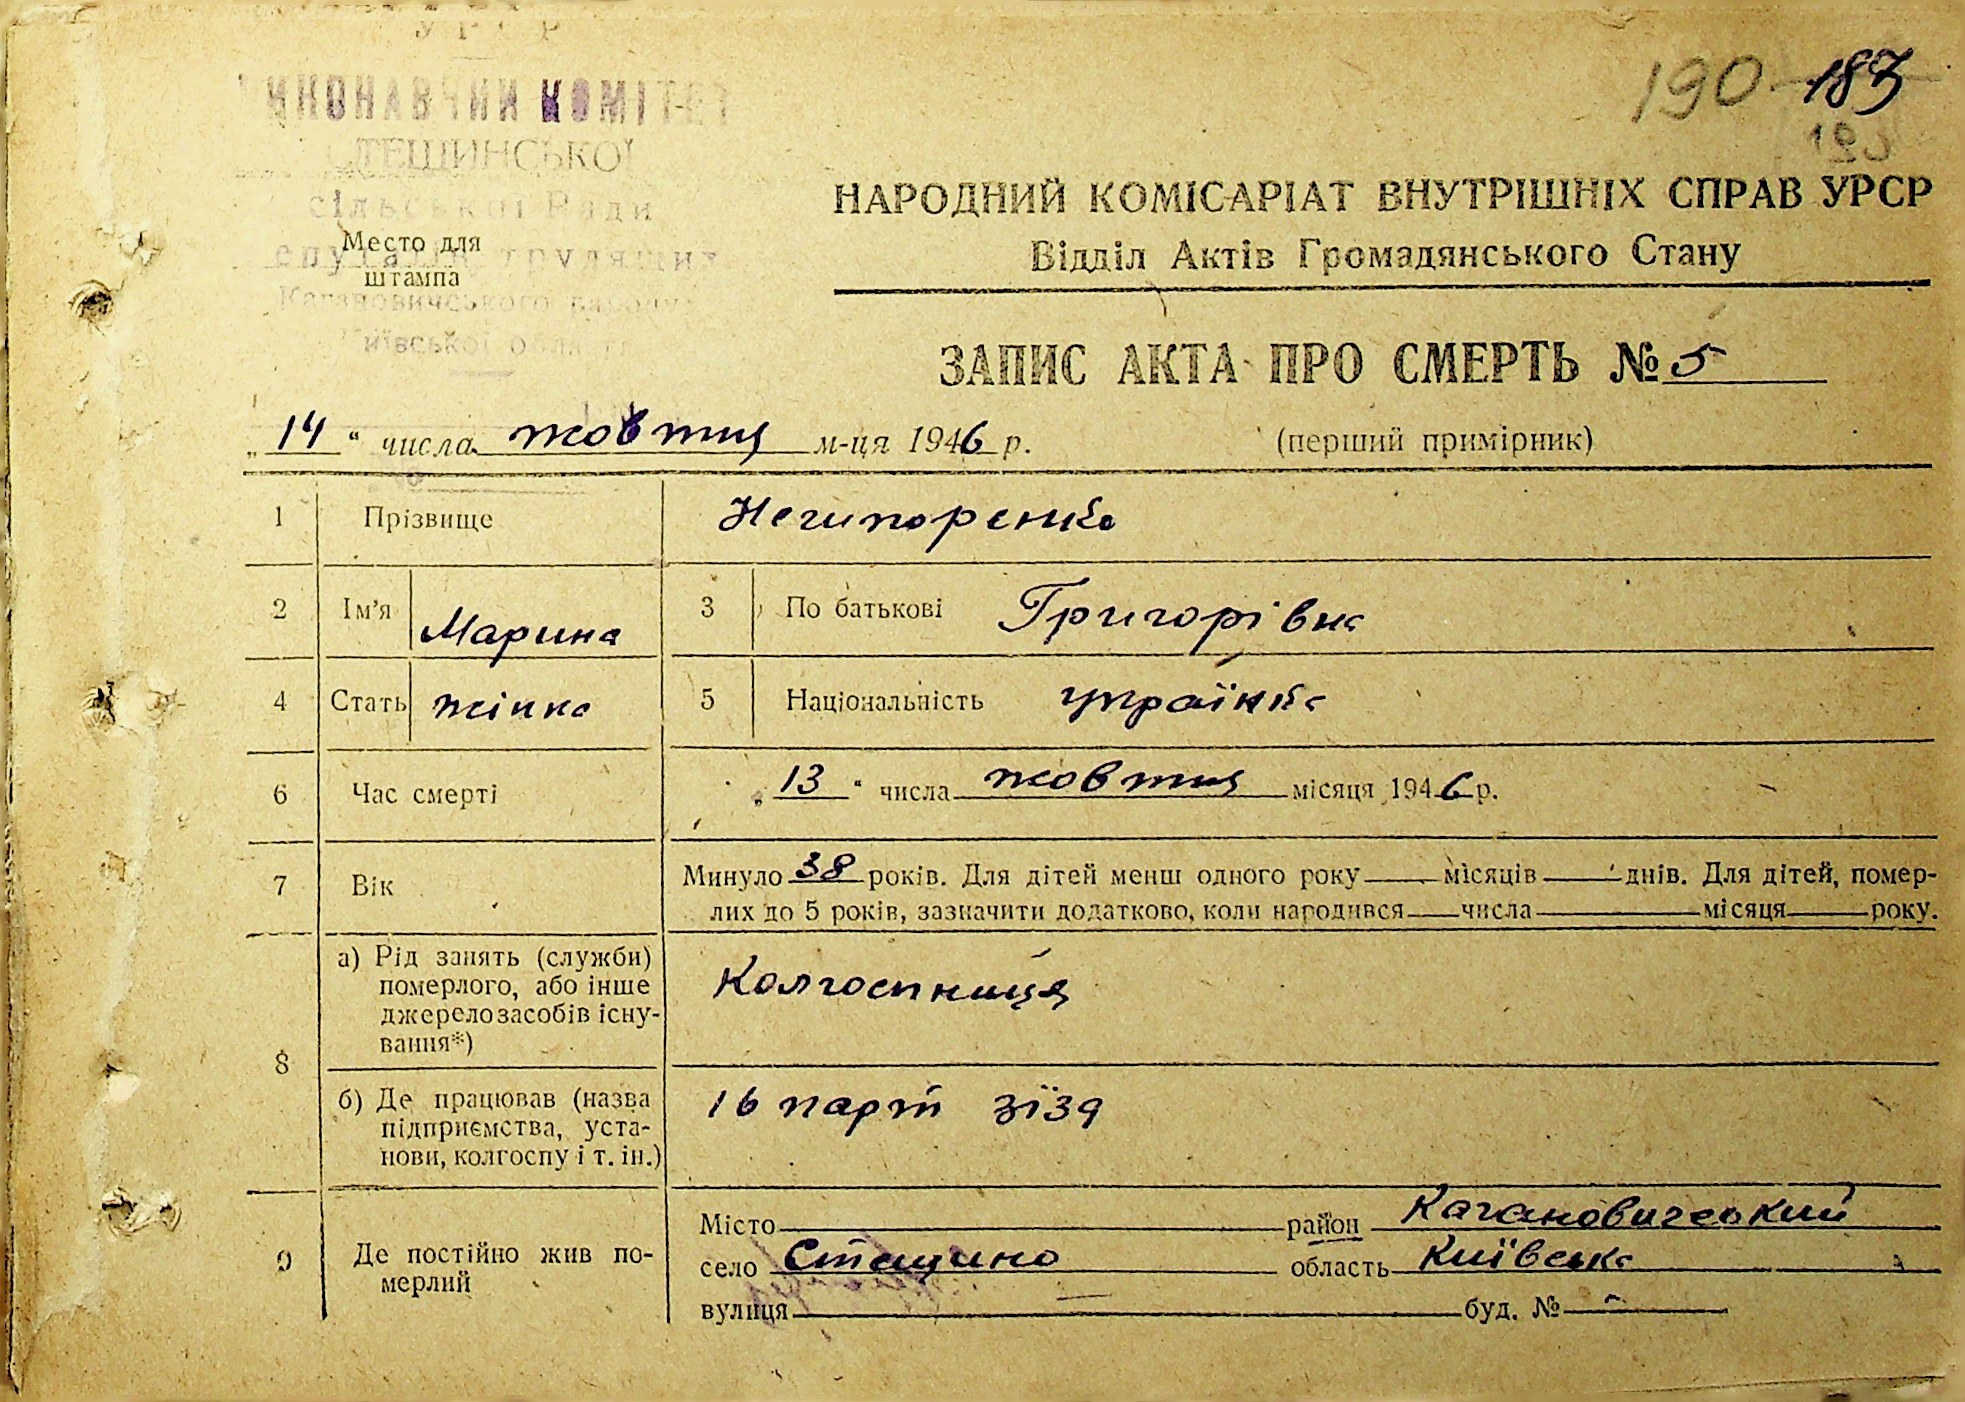 УРСР
ВИКОНАВЧИЙ КОМІТЕТ
СТЕЩИНСЬКОЇ
сільської Ради
депутатів трудящих
Кагановичського району
Київської області
Место для
штампа
190 187
190
НАРОДНИЙ КОМІСАРІАТ ВНУТРІШНІХ СПРАВ УРСР
Відділ Актів Громадянського Стану
ЗАПИС АКТА ПРО СМЕРТЬ № 5
„14“ числа жовтня м-ця 1946 р. (перший примірник)
1 Прізвище Нечипоренко
2 Ім'я Марина 3 По батькові Григорівна
4 Стать жінка 5 Національність українка
6 Час смерті „13“ числа жовтня місяця 1946 р.
7 Вік Минуло 38 років. Для дітей менш одного року місяців днів. Для дітей, помер-
лих до 5 років, зазначити додатково, коли народився числа місяця року.
8 а) Рід занять (служби)
померлого, або інше
джерело засобів існу-
вання*)
Колгоспниця
б) Де працював (назва
підприємства, уста-
нови, колгоспу і т. ін.)
16 парт зїзд
9 Де постійно жив по-
мерлий
Місто район Кагановичеський
село Стещино область Київська
вулиця буд. № -